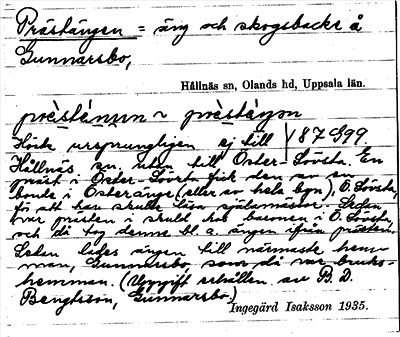 Prästängen = äng och skogsbacke å
Gunnarsbo,
Hållnäs sn, Olands hd, Uppsala län.
prèstä́ŋən ~ prèstǽŋən
Hörde ursprungligen ej till 87 G99.
Hållnäs sn. utan till Öster-Lövsta. En
präst i Öster-Lövsta fick den av en
bonde i Österänge (eller av hela byn), Ö. Lövsta,
för att han skulle läsa själamässor. Sedan
var prästen i skuld hos baronen i Ö. Lövsta,
och då tog denne bl. a. ängen ifrån prästen.
Sedan lades ängen till närmaste hem-
man, Gunnarsbo som då var bruks-
hemman. (Uppgift erhållen av B. D.
Bengtsson, Gunnarsbo.)
Ingegärd Isaksson 1935.